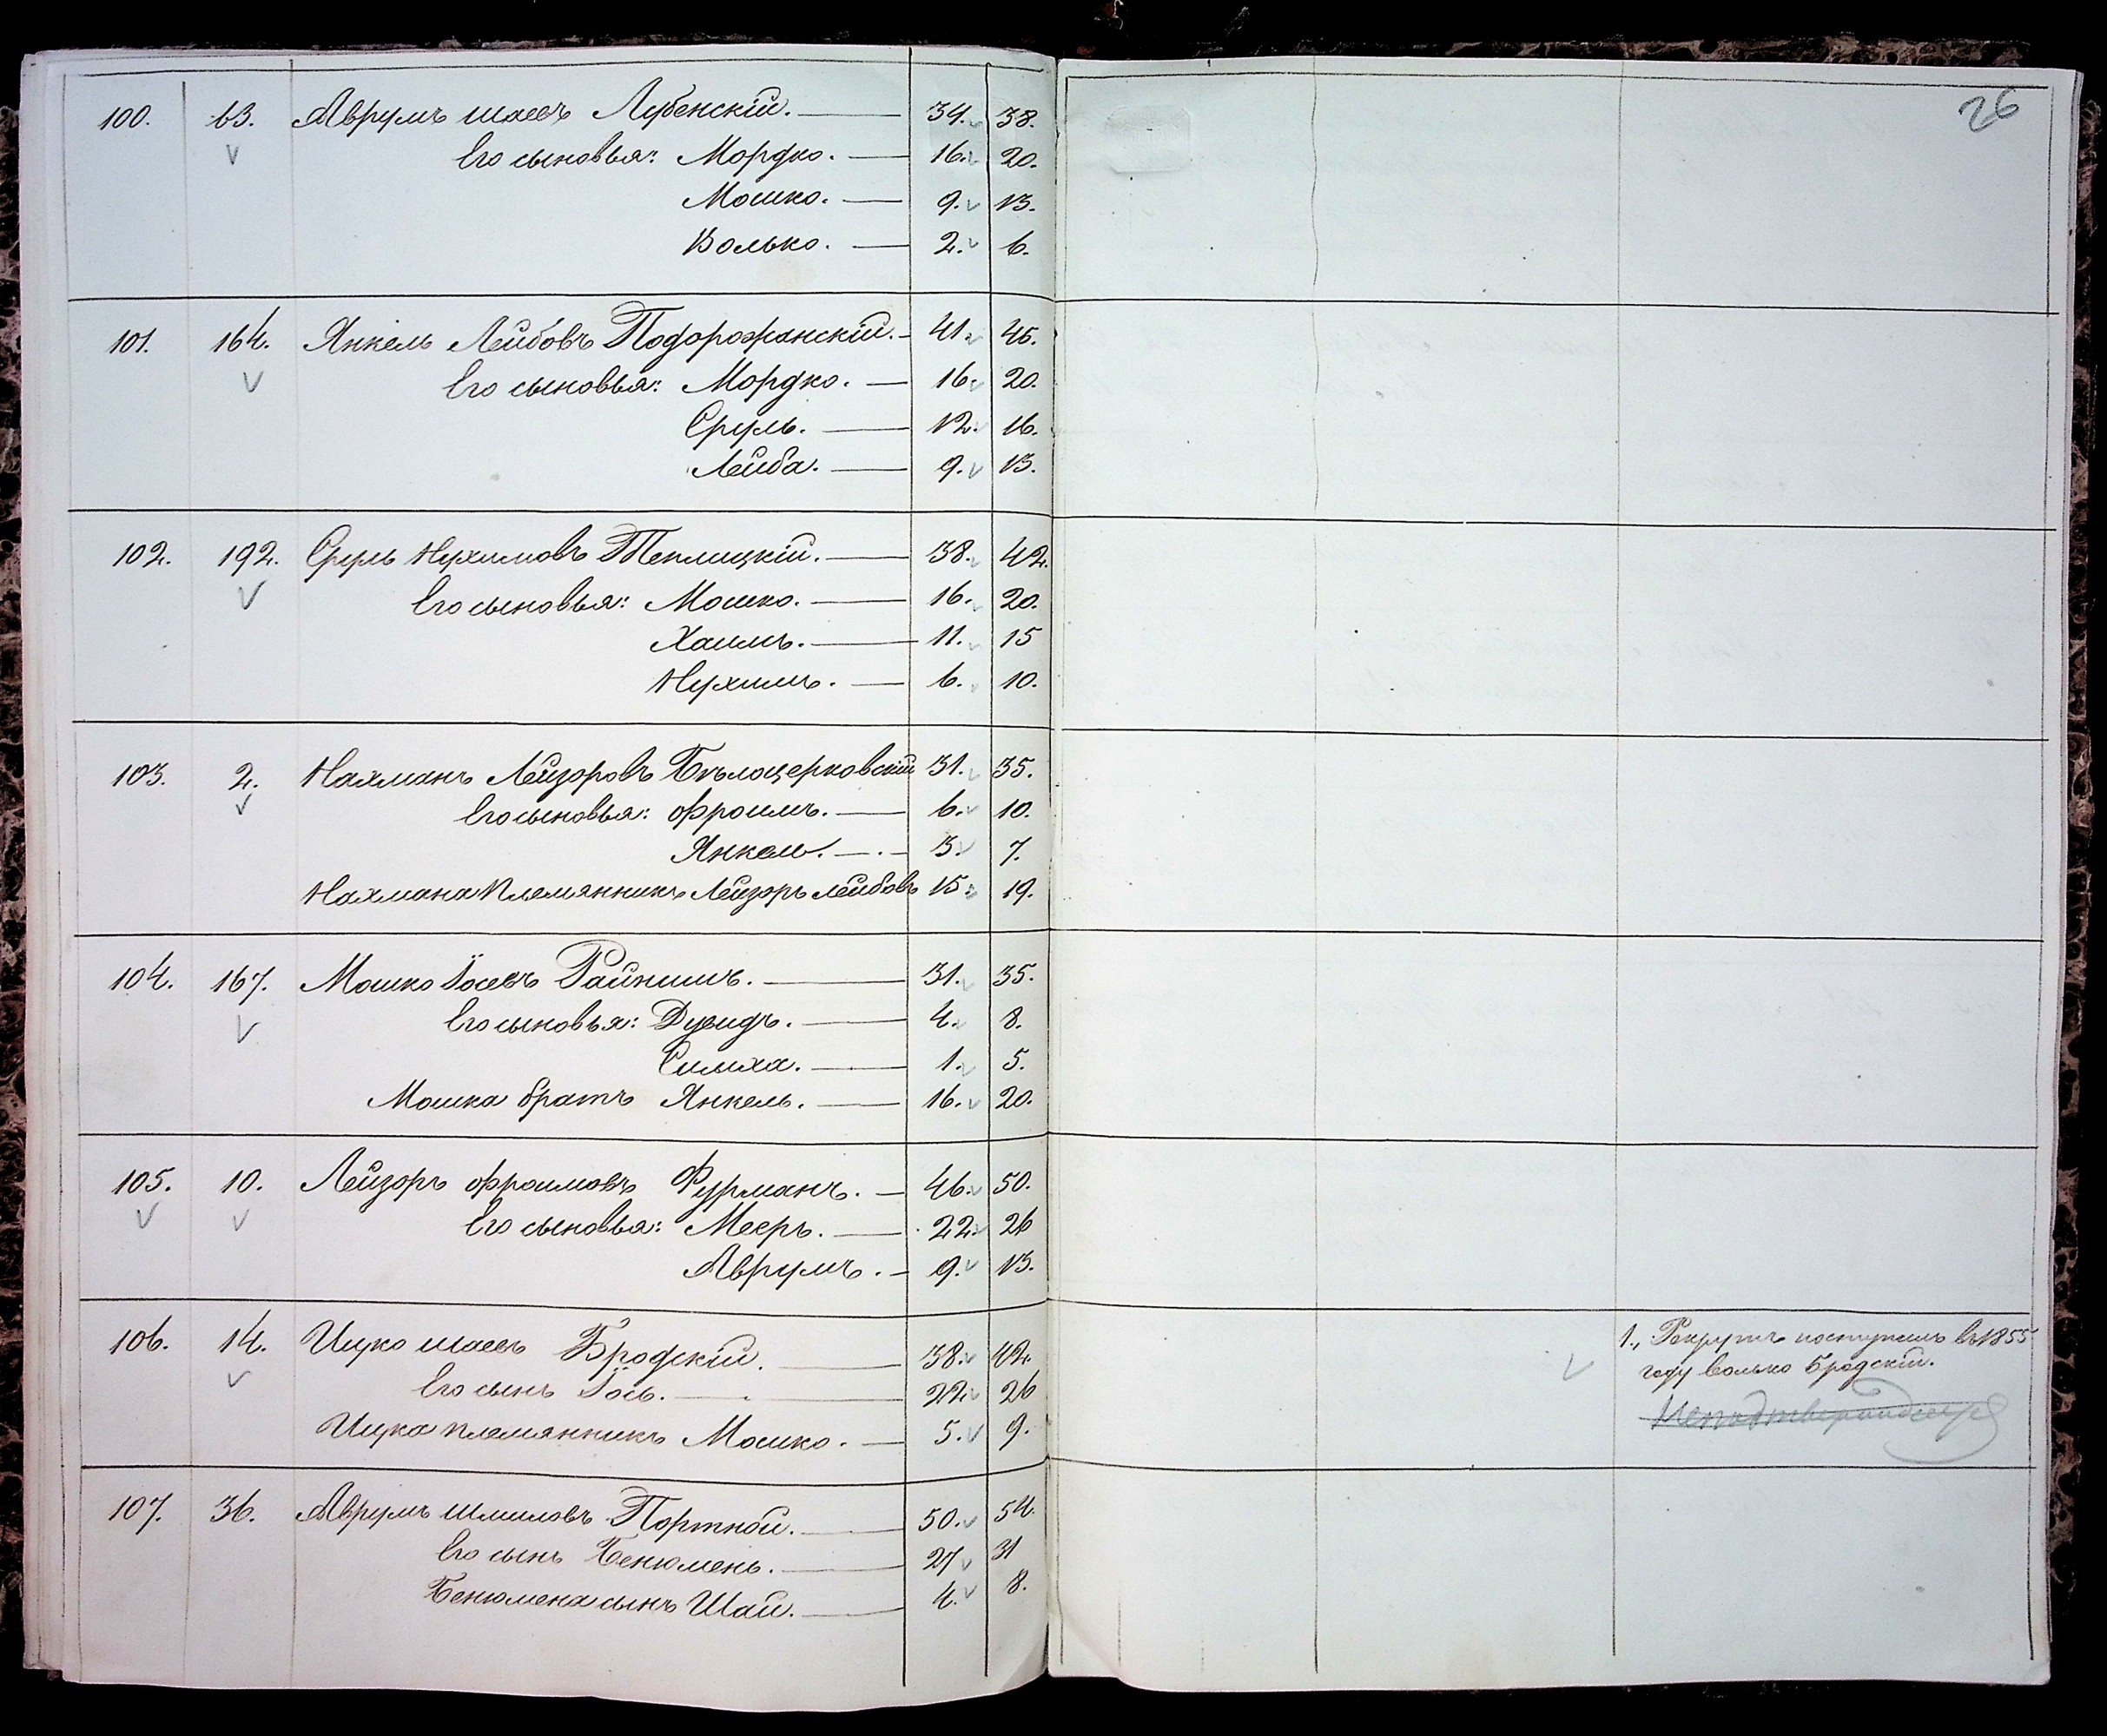 26
100. 63. Аврумъ Шаевъ Лубенскій. 34. 38.
Его сыновья: Мордко. 16. 20.
Мошко. 9. 13.
Волько. 2. 6.
101. 164. Янкель Лейбовъ Подорожанскій. 41. 45.
Его сыновья: Мордко. 16. 20.
Сруль. 12. 16.
Лейба. 9. 13.
102. 192. Сруль Нухимовъ Теплицкій. 38. 42.
Его сыновья: Мошко. 16. 20.
Хаимъ. 11. 15
Нухимъ. 6. 10.
103. 2. Нахманъ Лейзоровъ Бѣлоцерковскій 31. 35.
Его сыновья: Фроимъ. 6. 10.
Янкель. 3. 7.
Нахмана племянникъ Лейзоръ Лейбовъ 15. 19.
104. 167. Мошко Іосевъ 31. 35.
Его сыновья: Дувидъ. 4. 8.
Симха. 1. 5.
Мошка братъ Янкель. 16. 20.
105. 10. Лейзоръ Фроимовъ Фурманъ. 46. 50.
Его сыновья: Мееръ. 22. 26
Аврумъ. 9. 13.
106. 14. Ицко Шаевъ Бродскій. 38. 42.
Его сынъ Іось. 22. 26
Ицка племянникъ Мошко. 5. 9.
1., Рекрутъ поступилъ въ 1855
году Волько Бродскій.
107. 36. Аврумъ Шмиловъ Портной. 50. 54.
Его сынъ Бенюмень. 27 31
Бенюмена сынъ Шай. 4. 8.